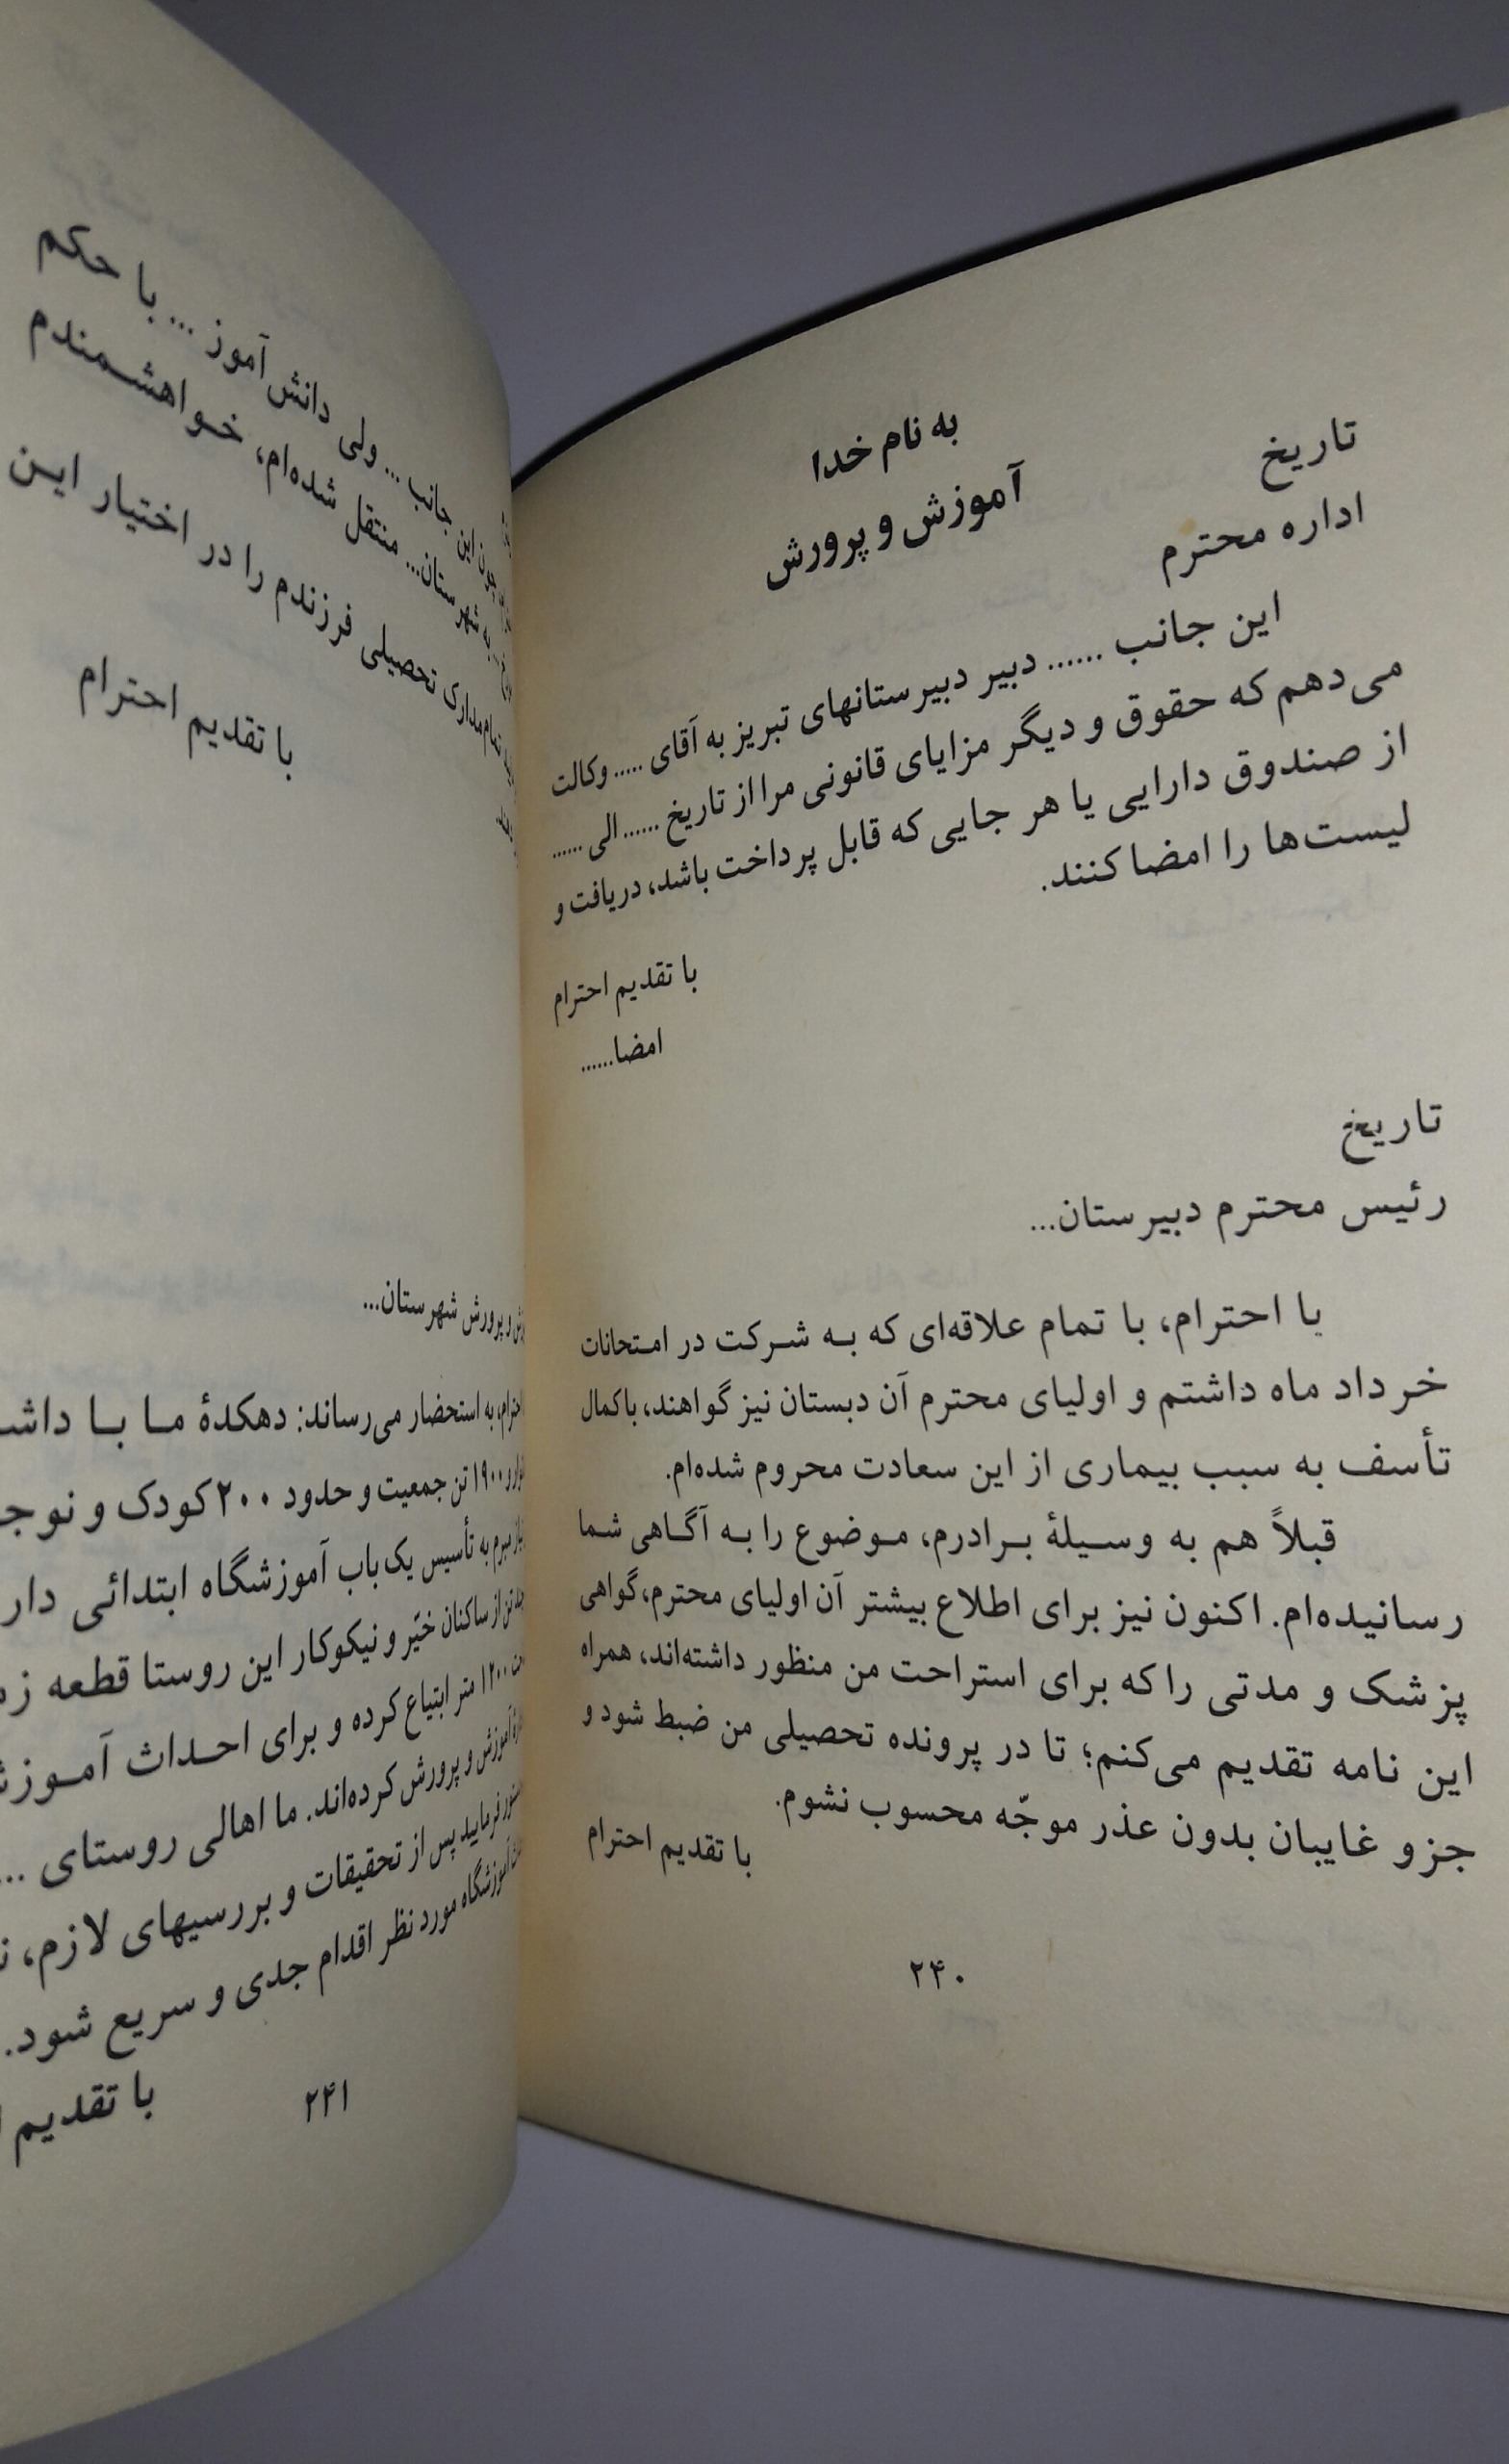 به نام خدا
تاریخ
اداره محترم آموزش و پرورش
این جانب ...... دبیر دبیرستانهای تبریز به آقای ..... وکالت
می‌دهم که حقوق و دیگر مزایای قانونی مرا از تاریخ ...... الی ......
از صندوق دارایی یا هر جایی که قابل پرداخت باشد، دریافت و
لیست‌ها را امضا کنند.
با تقدیم احترام
امضا......
تاریخ
رئیس محترم دبیرستان...
با احترام، با تمام علاقه‌ای که به شرکت در امتحانات
خرداد ماه داشتم و اولیای محترم آن دبستان نیز گواهند، با کمال
تأسف به سبب بیماری از این سعادت محروم شده‌ام.
قبلاً هم به وسیلهٔ برادرم، موضوع را به آگاهی شما
رسانیده‌ام. اکنون نیز برای اطلاع بیشتر آن اولیای محترم، گواهی
پزشک و مدتی را که برای استراحت من منظور داشته‌اند، همراه
این نامه تقدیم می‌کنم؛ تا در پرونده تحصیلی من ضبط شود و
جزو غایبان بدون عذر موجّه محسوب نشوم.
با تقدیم احترام
۲۴۰
چون این جانب ... ولی دانش آموز ... با حکم
به شهرستان... منتقل شده‌ام، خواهشمندم
تمام مدارک تحصیلی فرزندم را در اختیار این
با تقدیم احترام
و پرورش شهرستان...
به استحضار می‌رساند: دهکدهٔ ما با
۱۹۰۰ تن جمعیت و حدود ۲۰۰ کودک و
مبرم به تأسیس یک باب آموزشگاه ابتدائی
از ساکنان خیّر و نیکوکار این روستا قطعه
۱۲۰۰ متر ابتیاع کرده و برای احداث
آموزش و پرورش کرده‌اند. ما اهالی روستای ...
فرمایید پس از تحقیقات و بررسیهای لازم،
آموزشگاه مورد نظر اقدام جدی و سریع شود.
با تقدیم
۲۴۱